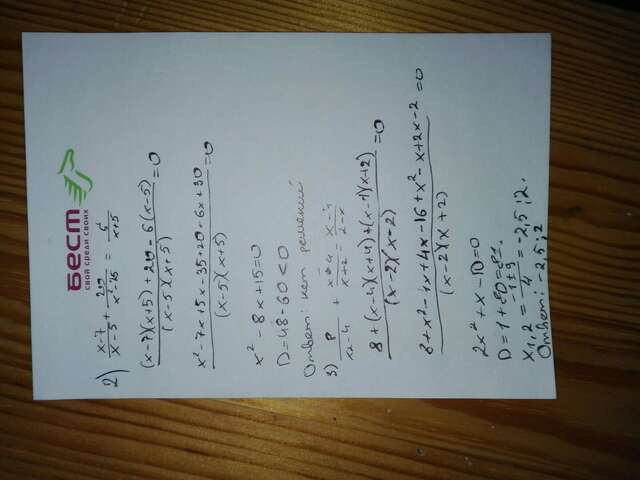 БЕСТ
СВОЙ СРЕДИ СВОИХ
2) x-7/x-5 + 20/x²-25 = 6/x+5
(x-7)(x+5)+20-6(x-5)/(x-5)(x+5) = 0
x²-7x+5x-35+20-6x+30/(x-5)(x+5) = 0
x²-8x+15=0
D=48-60<0
Ответ: нет решений
3) 8/x²-4 + x-4/x+2 = x-1/2-x
=0
=0
(x-2)(x+2)
2x²+x-10=0
D=1+80=81
x1,2 = -1±9/4 = -2,5;2.
Ответ: -2,5;2